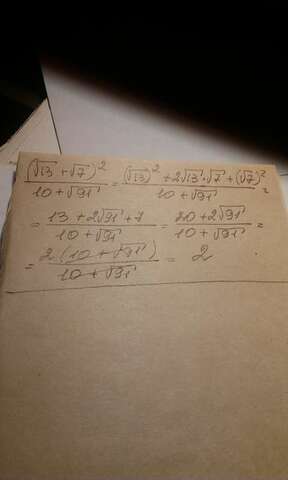 (√13 + √7)² / (10 + √91) = ((√13)² + 2√13·√7 + (√7)²) / (10 + √91) =
= (13 + 2√91 + 7) / (10 + √91) = (20 + 2√91) / (10 + √91) =
= 2(10 + √91) / (10 + √91) = 2